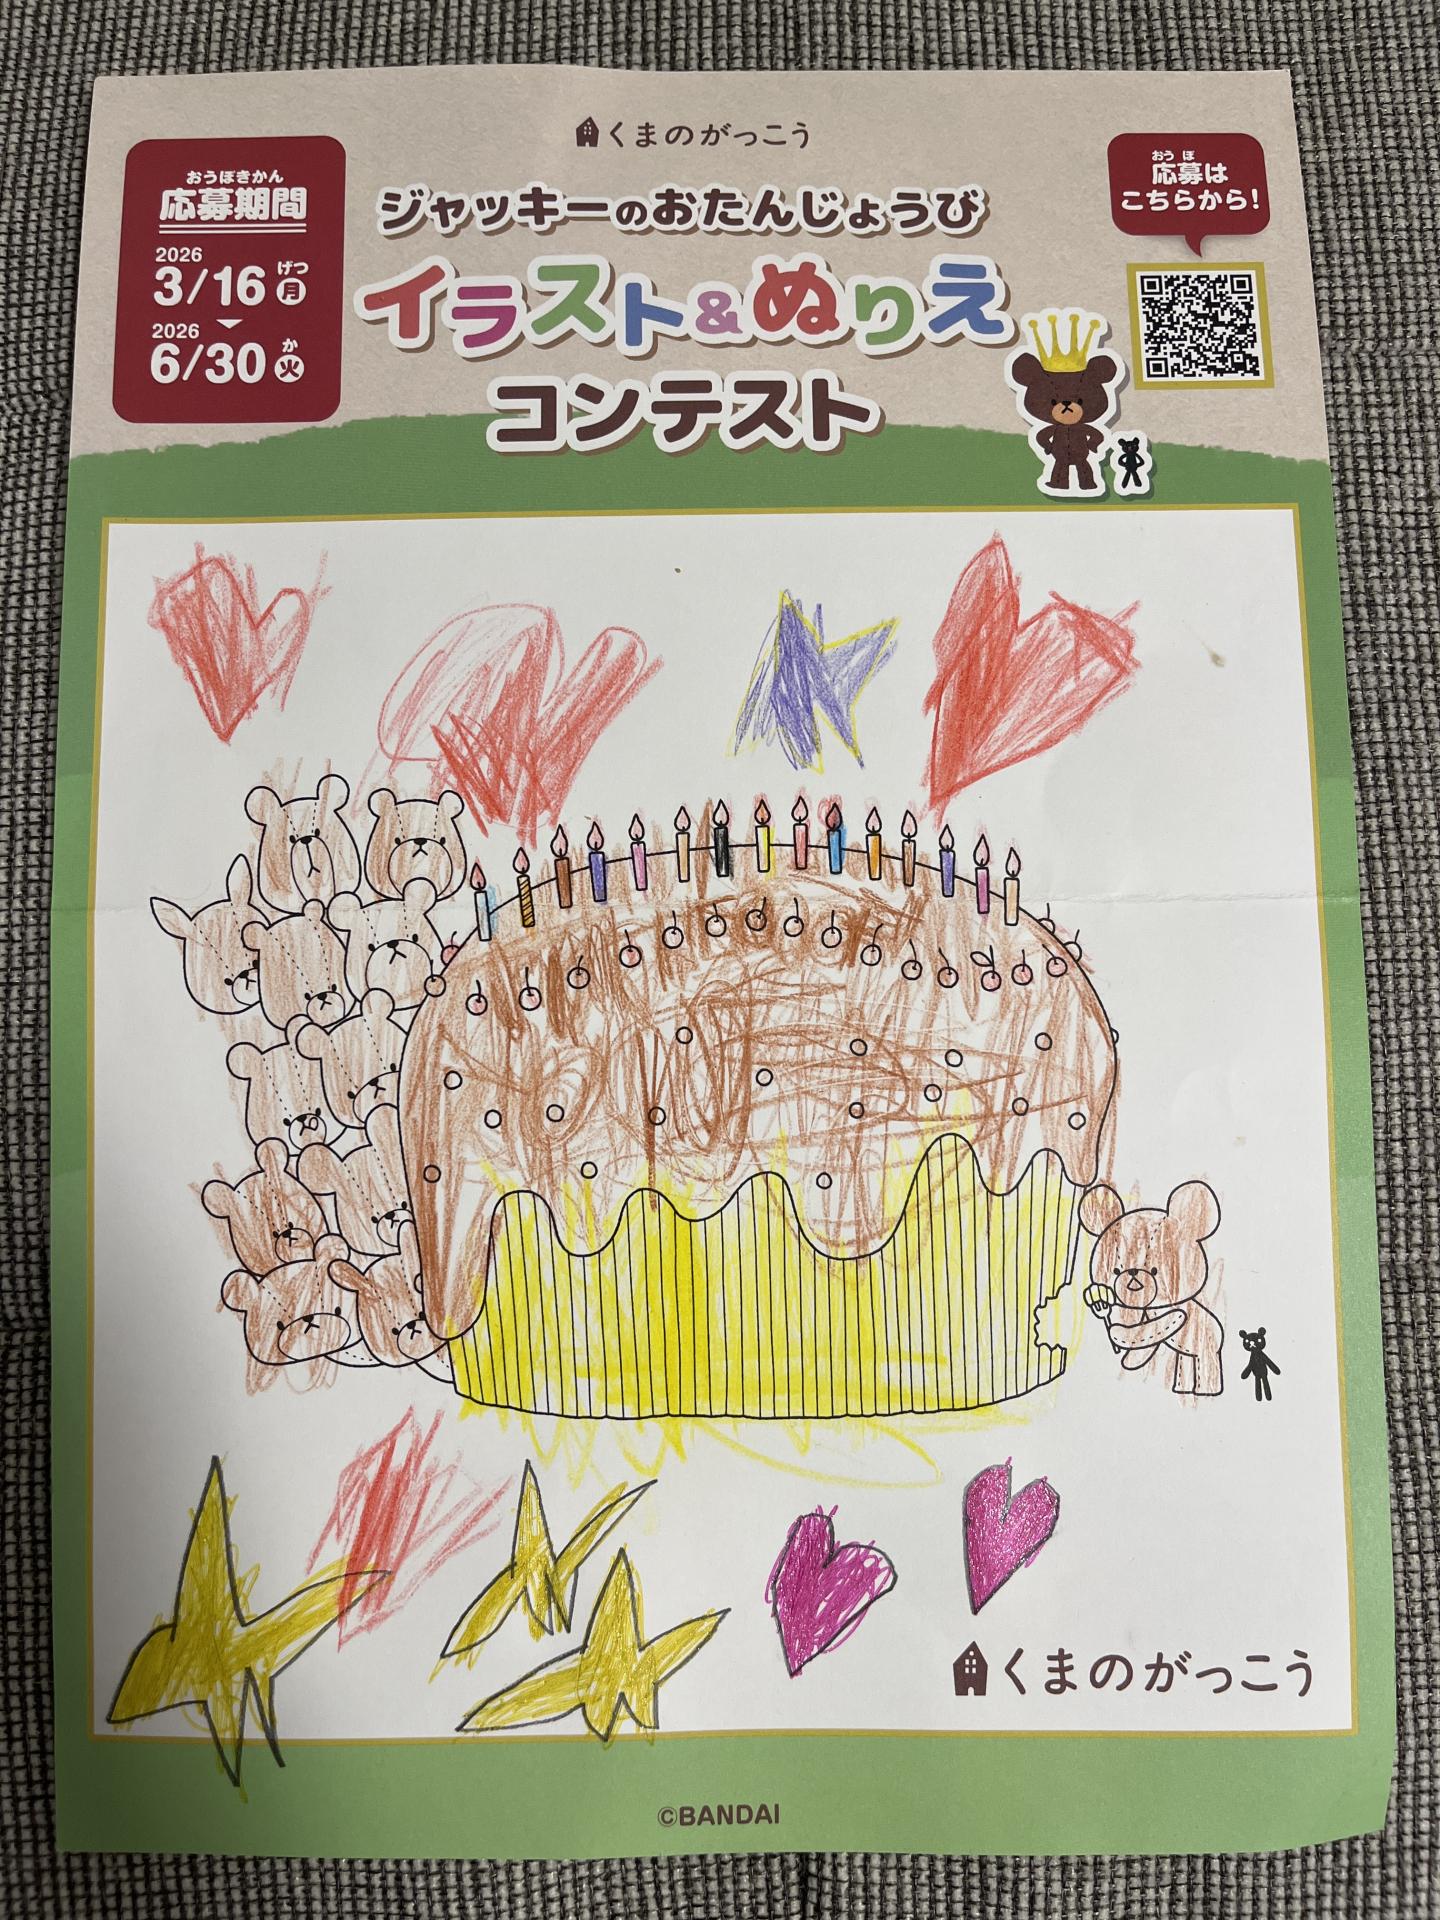 くまのがっこう
おうぼきかん
応募期間
2026
3/16 げつ
月
2026
6/30 か
火
ジャッキーのおたんじょうび
イラスト&ぬりえ
コンテスト
おうぼ
応募は
こちらから!
くまのがっこう
©BANDAI